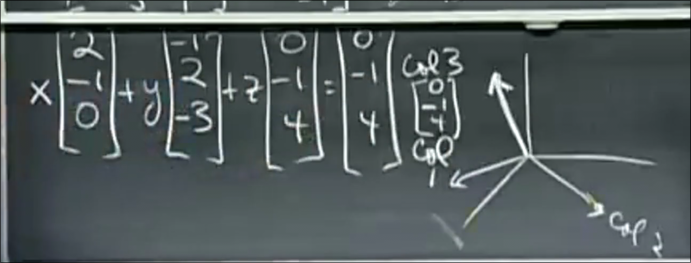 x [2 -1 0] + y [-1 2 -3] + z [0 -1 4] = [0 -1 4]
Col 3
[0 -1 4]
Col 1
Col 2